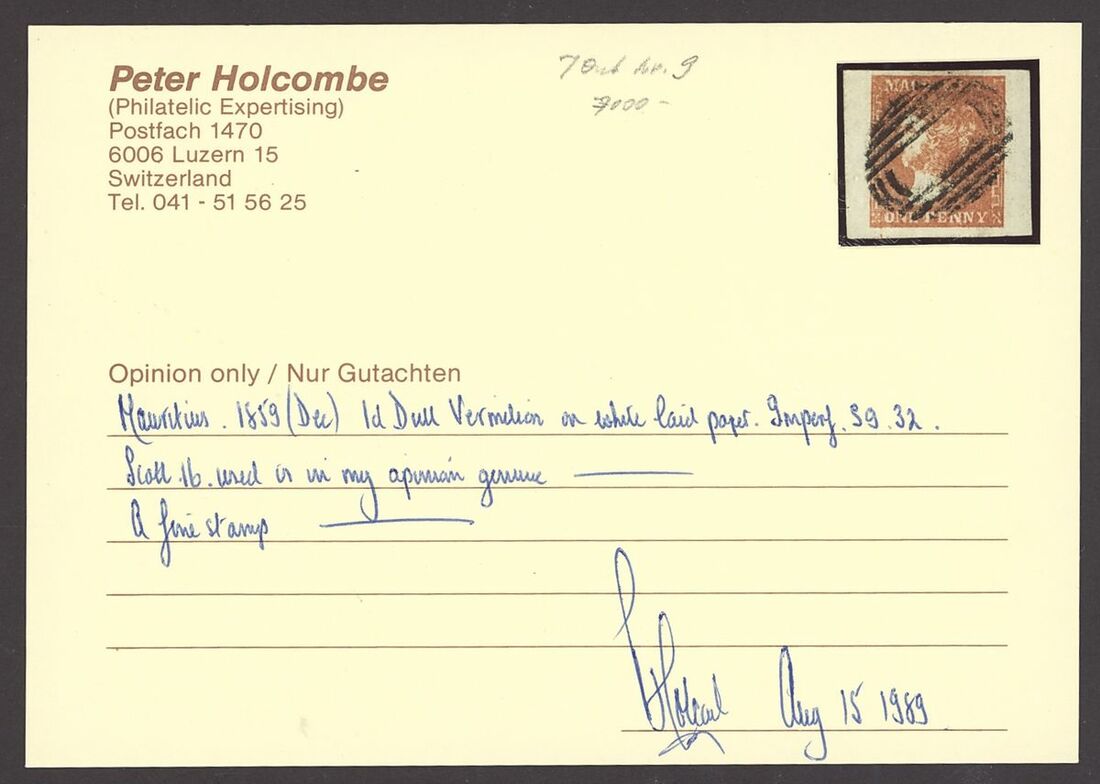 Peter Holcombe
(Philatelic Expertising)
Postfach 1470
6006 Luzern 15
Switzerland
Tel. 041 - 51 56 25
7000 -
MAU
ONE PENNY
Opinion only / Nur Gutachten
Mauritius. 1859 (Dec) 1d Dull Vermilion on white laid paper. Imperf. SG. 32.
Scott 16. used is in my opinion genuine
A fine stamp
Holcombe Aug 15 1989